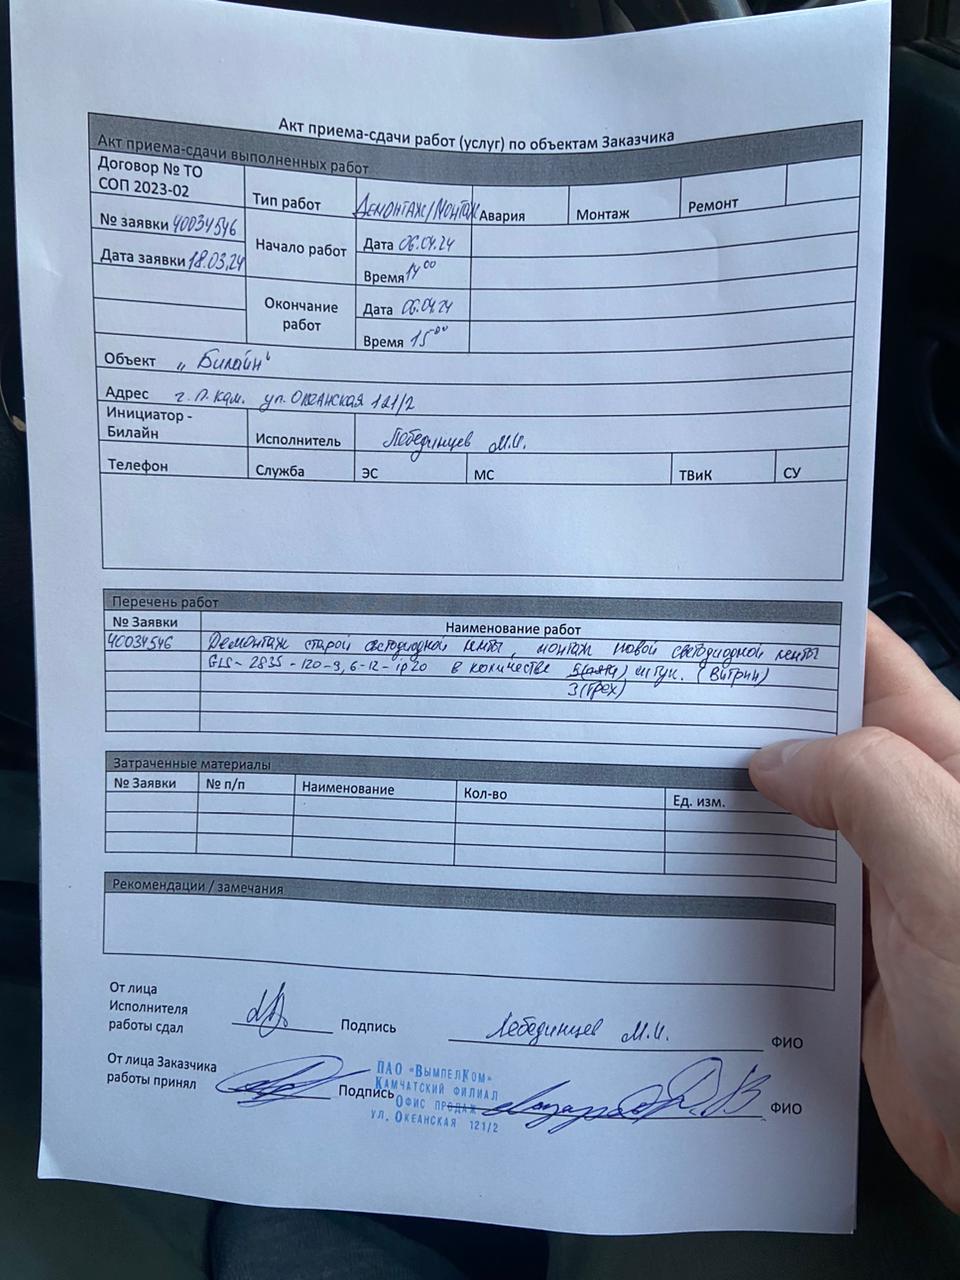 Акт приема-сдачи работ (услуг) по объектам Заказчика
Акт приема-сдачи выполненных работ
Договор № ТО СОП 2023-02
Тип работ
Демонтаж/Монтаж
Авария
Монтаж
Ремонт
№ заявки 40034546
Начало работ
Дата 06.04.24
Дата заявки 18.03.24
Время 14 00
Окончание работ
Дата 06.04.24
Время 15 00
Объект „Билайн“
Адрес г. П. Кам. ул. Океанская 121/2
Инициатор - Билайн
Исполнитель
Лобединцев М.И.
Телефон
Служба
ЭС
МС
ТВиК
СУ
Перечень работ
№ Заявки
Наименование работ
40034546 Демонтаж старой светодиодной ленты, монтаж новой светодиодной ленты
GLS-2835-120-9,6-12-ip20 в количестве 5(пяти) штук. (Витрин)
3(трех)
Затраченные материалы
№ Заявки
№ п/п
Наименование
Кол-во
Ед. изм.
Рекомендации / замечания
От лица
Исполнителя
работы сдал
Подпись
Лобединцев М.И.
ФИО
От лица Заказчика
работы принял
Подпись
ФИО
ПАО «ВымпелКом»
Камчатский филиал
Офис продаж
ул. Океанская 121/2